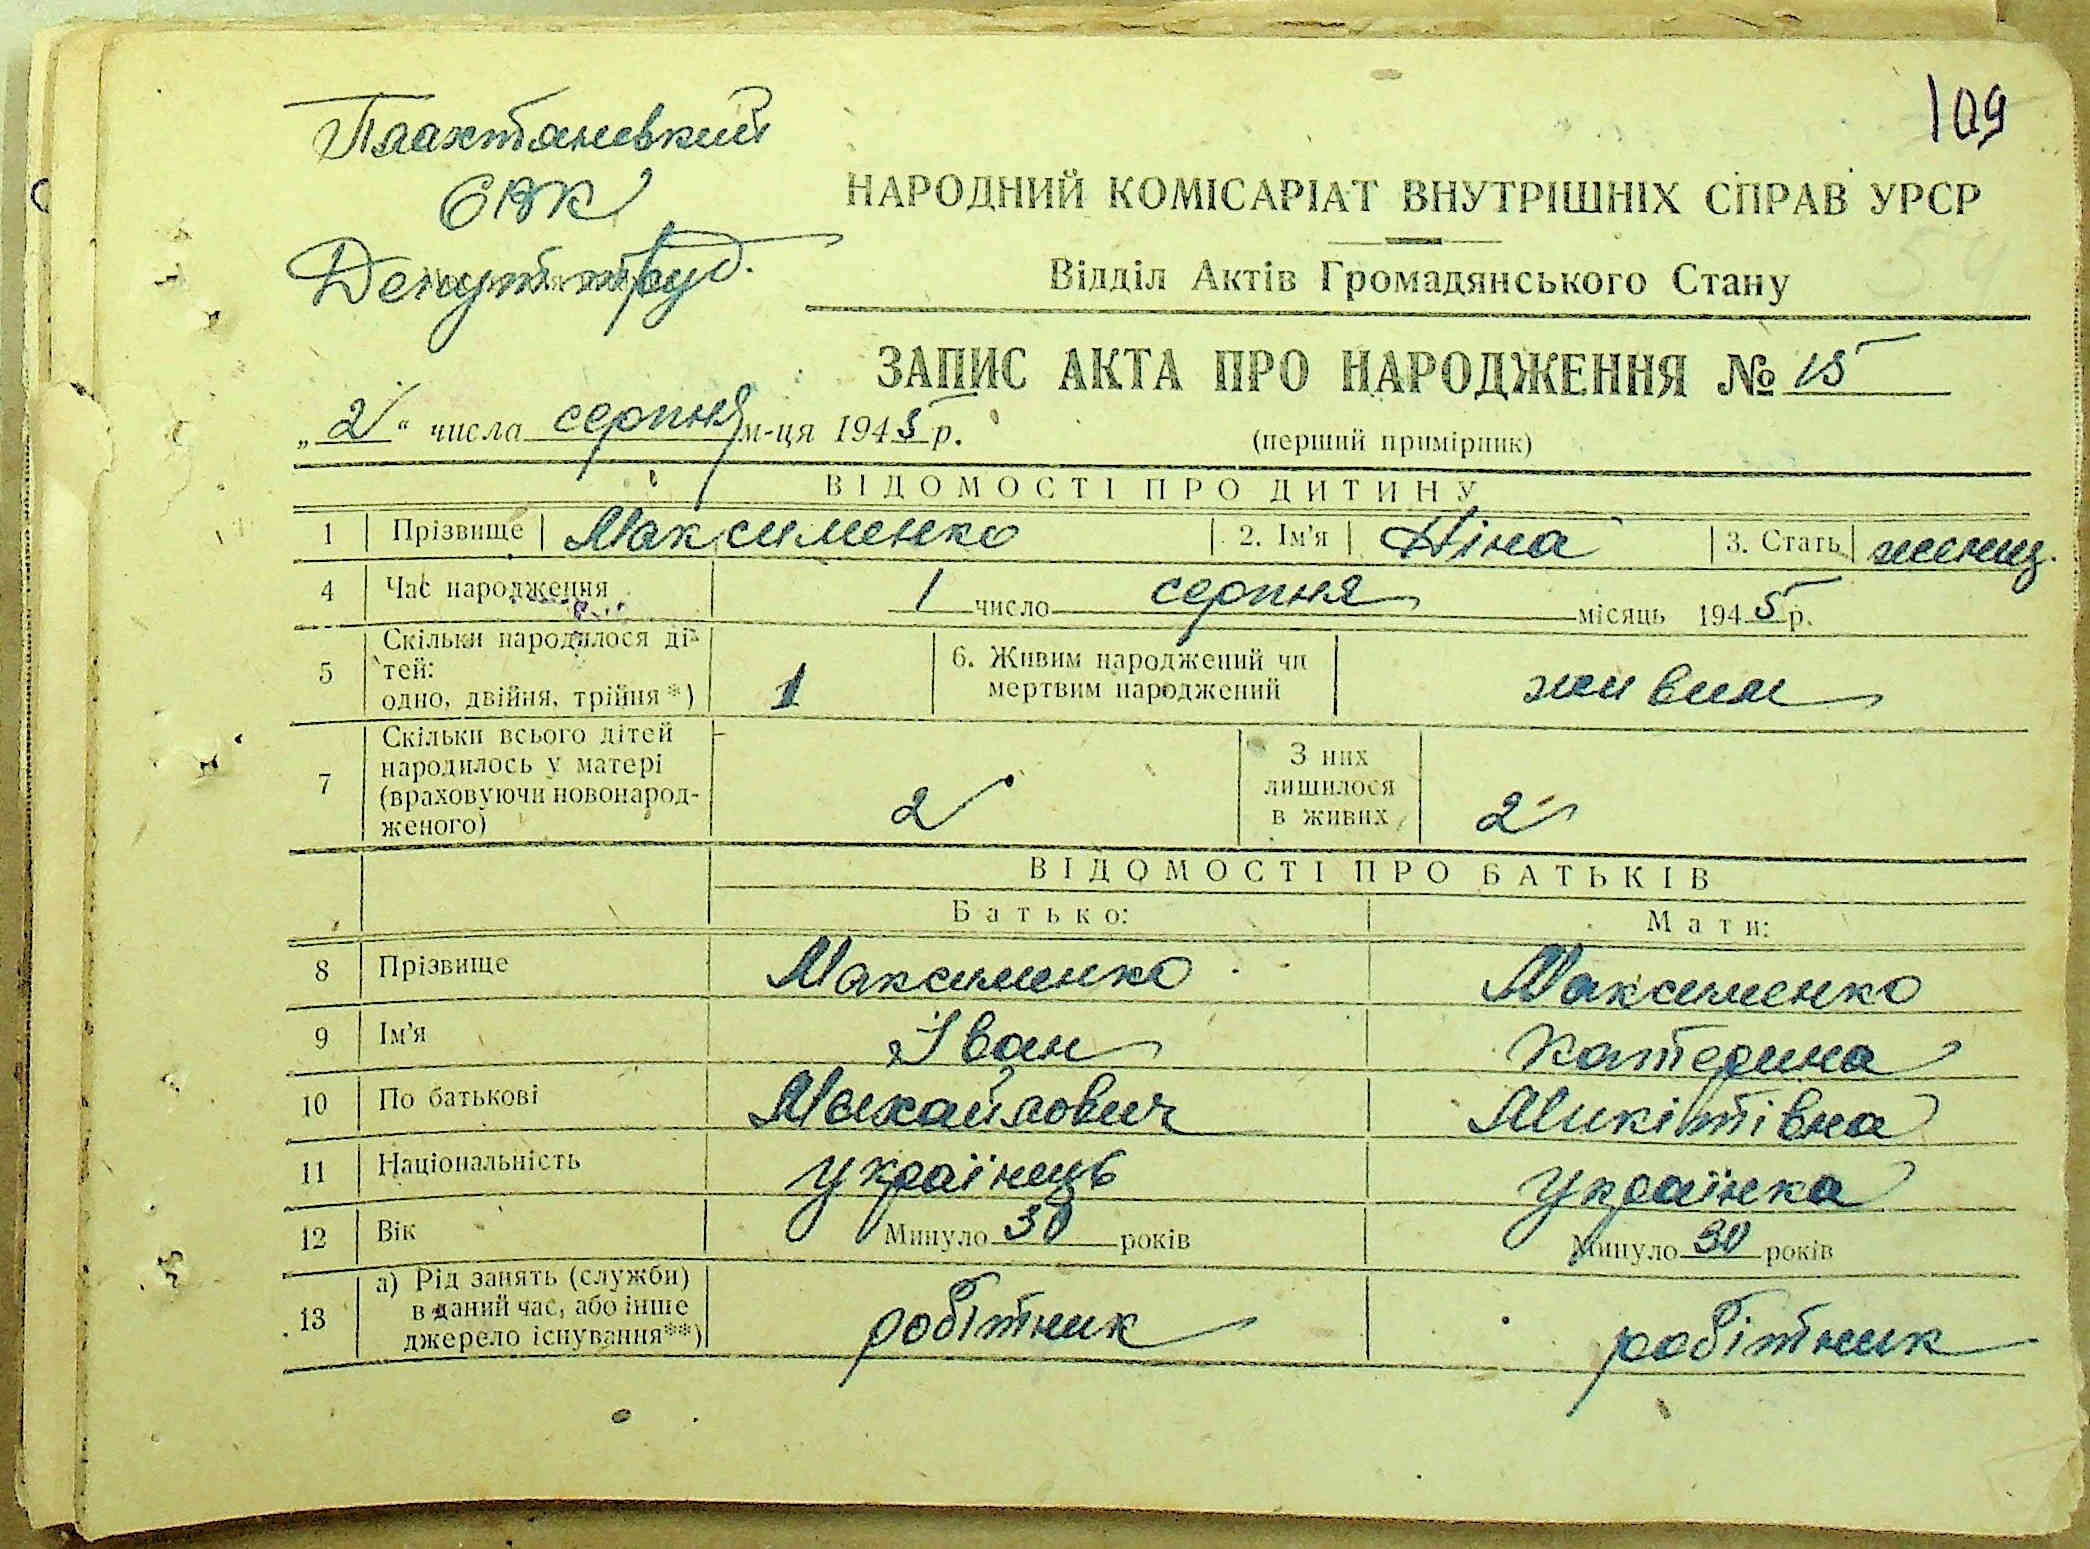 109
Плахтянський
НАРОДНИЙ КОМІСАРІАТ ВНУТРІШНІХ СПРАВ УРСР
Депут. труд.
Відділ Актів Громадянського Стану
ЗАПИС АКТА ПРО НАРОДЖЕННЯ № 15
„2“ числа серпня м-ця 1945 р.
(перший примірник)
ВІДОМОСТІ ПРО ДИТИНУ
1 Прізвище Максименко 2. Ім'я Ніна 3. Стать женщ.
4 Час народження 1 число серпня місяць 1945 р.
5 Скільки народилося ді-
тей:
одно, двійня, трійня*) 1
6. Живим народжений чи
мертвим народжений живим
7 Скільки всього дітей
народилось у матері
(враховуючи новонарод-
женого) 2
З них
лишилося
в живих 2
ВІДОМОСТІ ПРО БАТЬКІВ
Батько: Мати:
8 Прізвище Максименко Максименко
9 Ім'я Іван Катерина
10 По батькові Михайлович Микітівна
11 Національність українець українка
12 Вік Минуло 30 років Минуло 30 років
13 а) Рід занять (служби)
в даний час, або інше
джерело існування**) робітник робітник